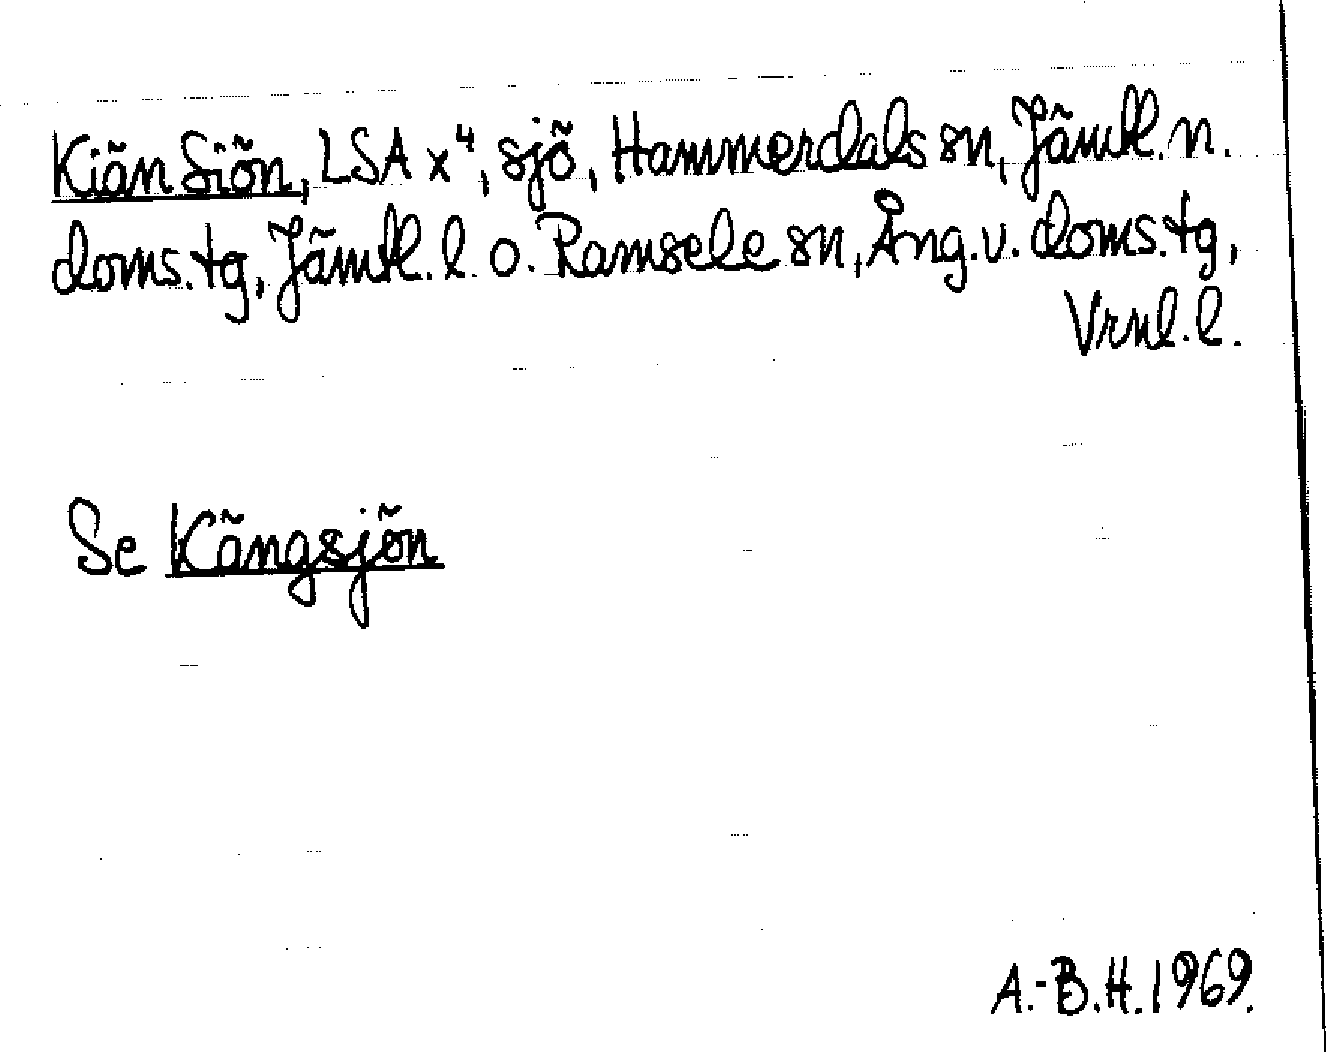 Kiän Siön, LSA x⁴, sjö, Hammerdals sn, Jämtl. n.
doms. tg, Jämtl. l. o. Ramsele sn, Ång. v. doms. tg,
Vrnl. l.
Se Kängsjön
A.-B.H. 1969.